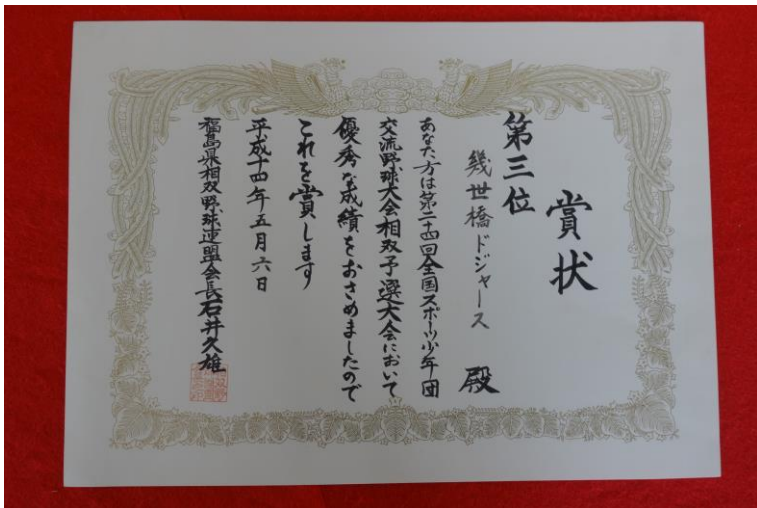 賞状
第三位
幾世橋ドジャース 殿
あなた方は第二十四回全国スポーツ少年団
交流野球大会相双予選大会において
優秀な成績をおさめましたので
これを賞します
平成十四年五月六日
福島県相双野球連盟会長石井久雄